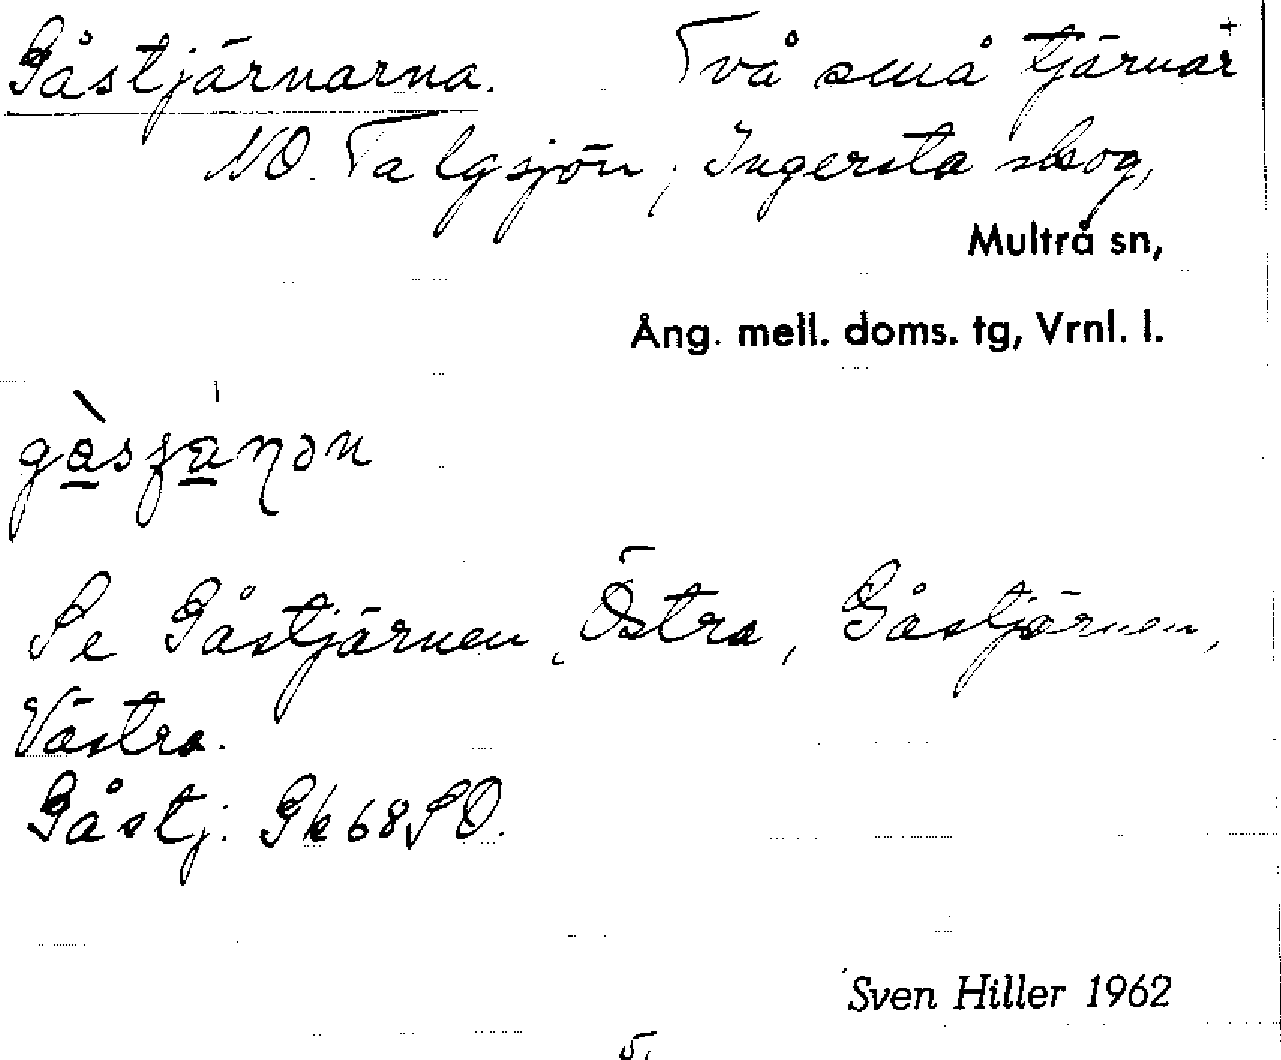 Gåstjärnarna. Två små tjärnar +
NO. Talgsjön, Ingersta skog,
Multrå sn,
Ång. mell. doms. tg, Vrnl. l.
Se Gåstjärnen, Östra, Gåstjärnen,
Västra.
Gåstj. Gk 68 SO.
Sven Hiller 1962
5.